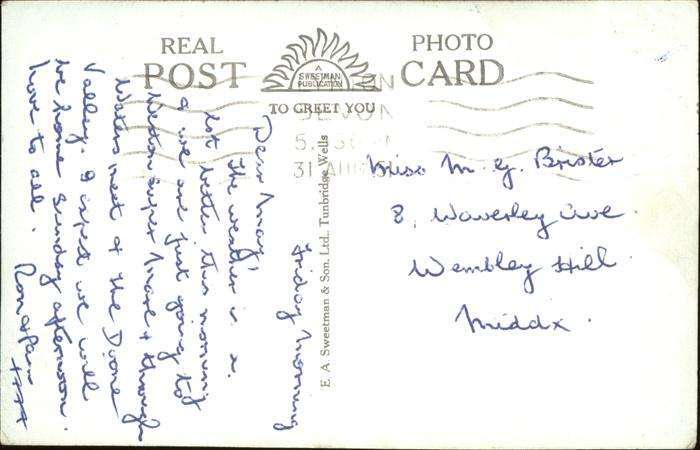 REAL PHOTO
POST CARD
A
SWEETMAN
PUBLICATION
TO GREET YOU
DEVON
31 AUG
E. A. Sweetman & Son, Ltd., Tunbridge Wells
Friday Morning
Dear May,
The weather is a
lot better this morning
& we are just going to
Weston super Mare & through
Waters meet & the Doone
Valley. I expect we will
be home Sunday afternoon.
Love to all.
Ron & Pam
xxxx
Miss M. G. Brister
8, Waverley Ave.
Wembley Hill
Middx.